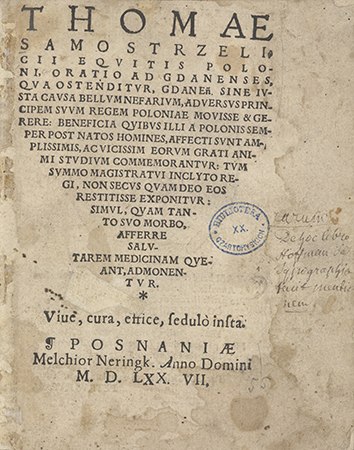 THOMAE
SAMOSTRZELI,
CII EQVITIS POLO-
NI, ORATIO AD GDANENSES,
QVA OSTENDITVR, GDANEñ. SINE IV-
STA CAVSA BELLVM NEFARIVM, ADVERSVS PRIN-
CIPEM SVVM REGEM POLONIAE MOVISSE &
GERERE: BENEFICIA QVIBVS ILLI A POLONIS SEM-
PER POST NATOS HOMINES, AFFECTI SVNT AM-
PLISSIMIS, AC VICISSIM EORVM GRATI ANI-
MI STVDIVM COMMEMORANTVR: TVM
SVMMO MAGISTRATVI INCLYTO RE-
GI, NON SECVS QVAM DEO EOS
RESTITISSE EXPONITVR:
SIMVL, QVAM TAN-
TO SVO MORBO,
AFFERRE
SALV-
TAREM MEDICINAM QVE-
ANT, ADMONEN-
TVR.
*
Viue, cura, etrice, sedulò insta.
¶ POSNANIÆ
Melchior Neringk. Anno Domini
M. D. LXX. VII.
BIBLIOTEKA
XX.
CZARTORYSKICH
De hoc libro
Hoffman de
Typographiis